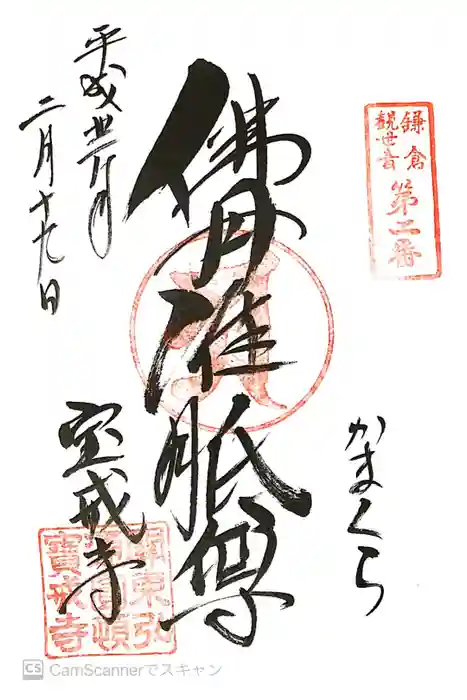 鎌倉
観世音
第二番
かまくら
佛母准胝尊
平成丗一年
二月十九日
宝戒寺
關東弘
通圓頓
寶戒寺
CS CamScannerでスキャン